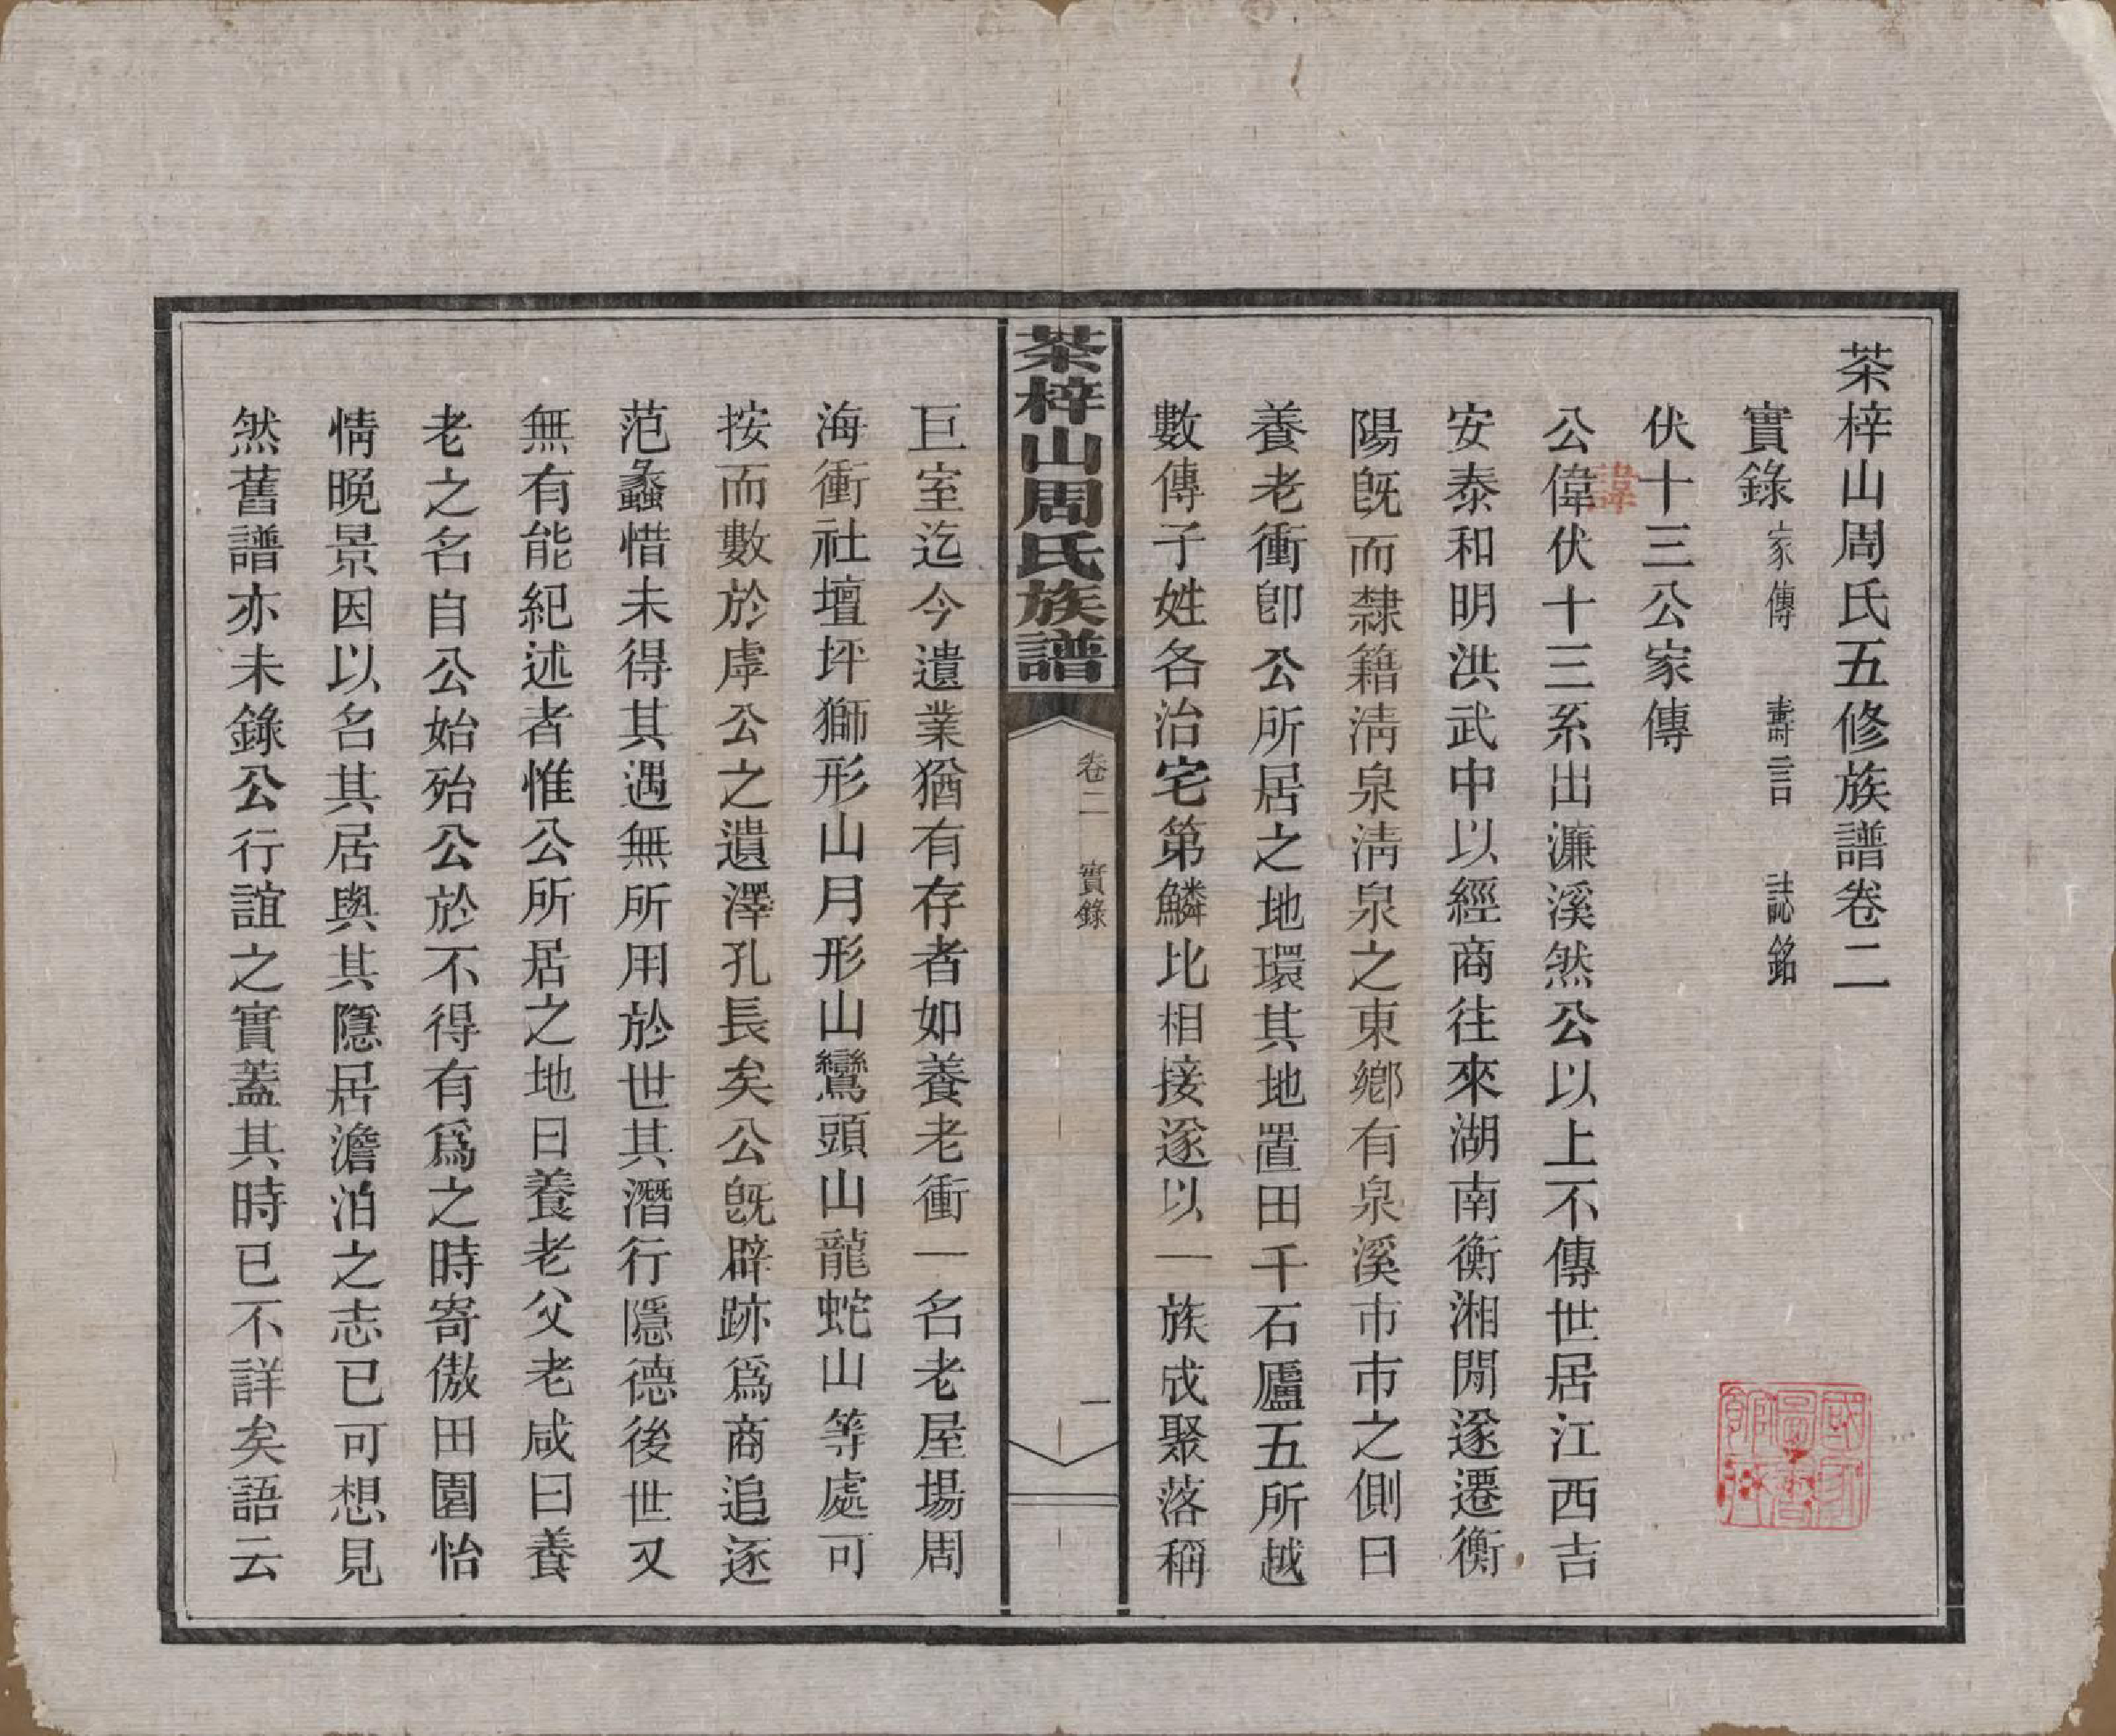 茶梓山周氏五修族譜卷二
實錄家傳 壽言 誌銘
伏十三公家傳
諱
公偉伏十三系出濂溪然公以上不傳世居江西吉
安泰和明洪武中以經商往來湖南衡湘間遂遷衡
陽旣而隸籍淸泉淸泉之東鄕有泉溪市市之側曰
養老衝卽公所居之地環其地置田千石廬五所越
數傳子姓各治宅第鱗比相接遂以一族成聚落稱
茶梓山周氏族譜
卷二 實錄
一
巨室迄今遺業猶有存者如養老衝一名老屋場周
海衝社壇坪獅形山月形山鸞頭山龍蛇山等處可
按而數於虖公之遺澤孔長矣公旣辟跡爲商追逐
范蠡惜未得其遇無所用於世其潛行隱德後世又
無有能紀述者惟公所居之地曰養老父老咸曰養
老之名自公始殆公於不得有爲之時寄傲田園怡
情晚景因以名其居與其隱居澹泊之志已可想見
然舊譜亦未錄公行誼之實蓋其時已不詳矣語云
國家圖書館藏